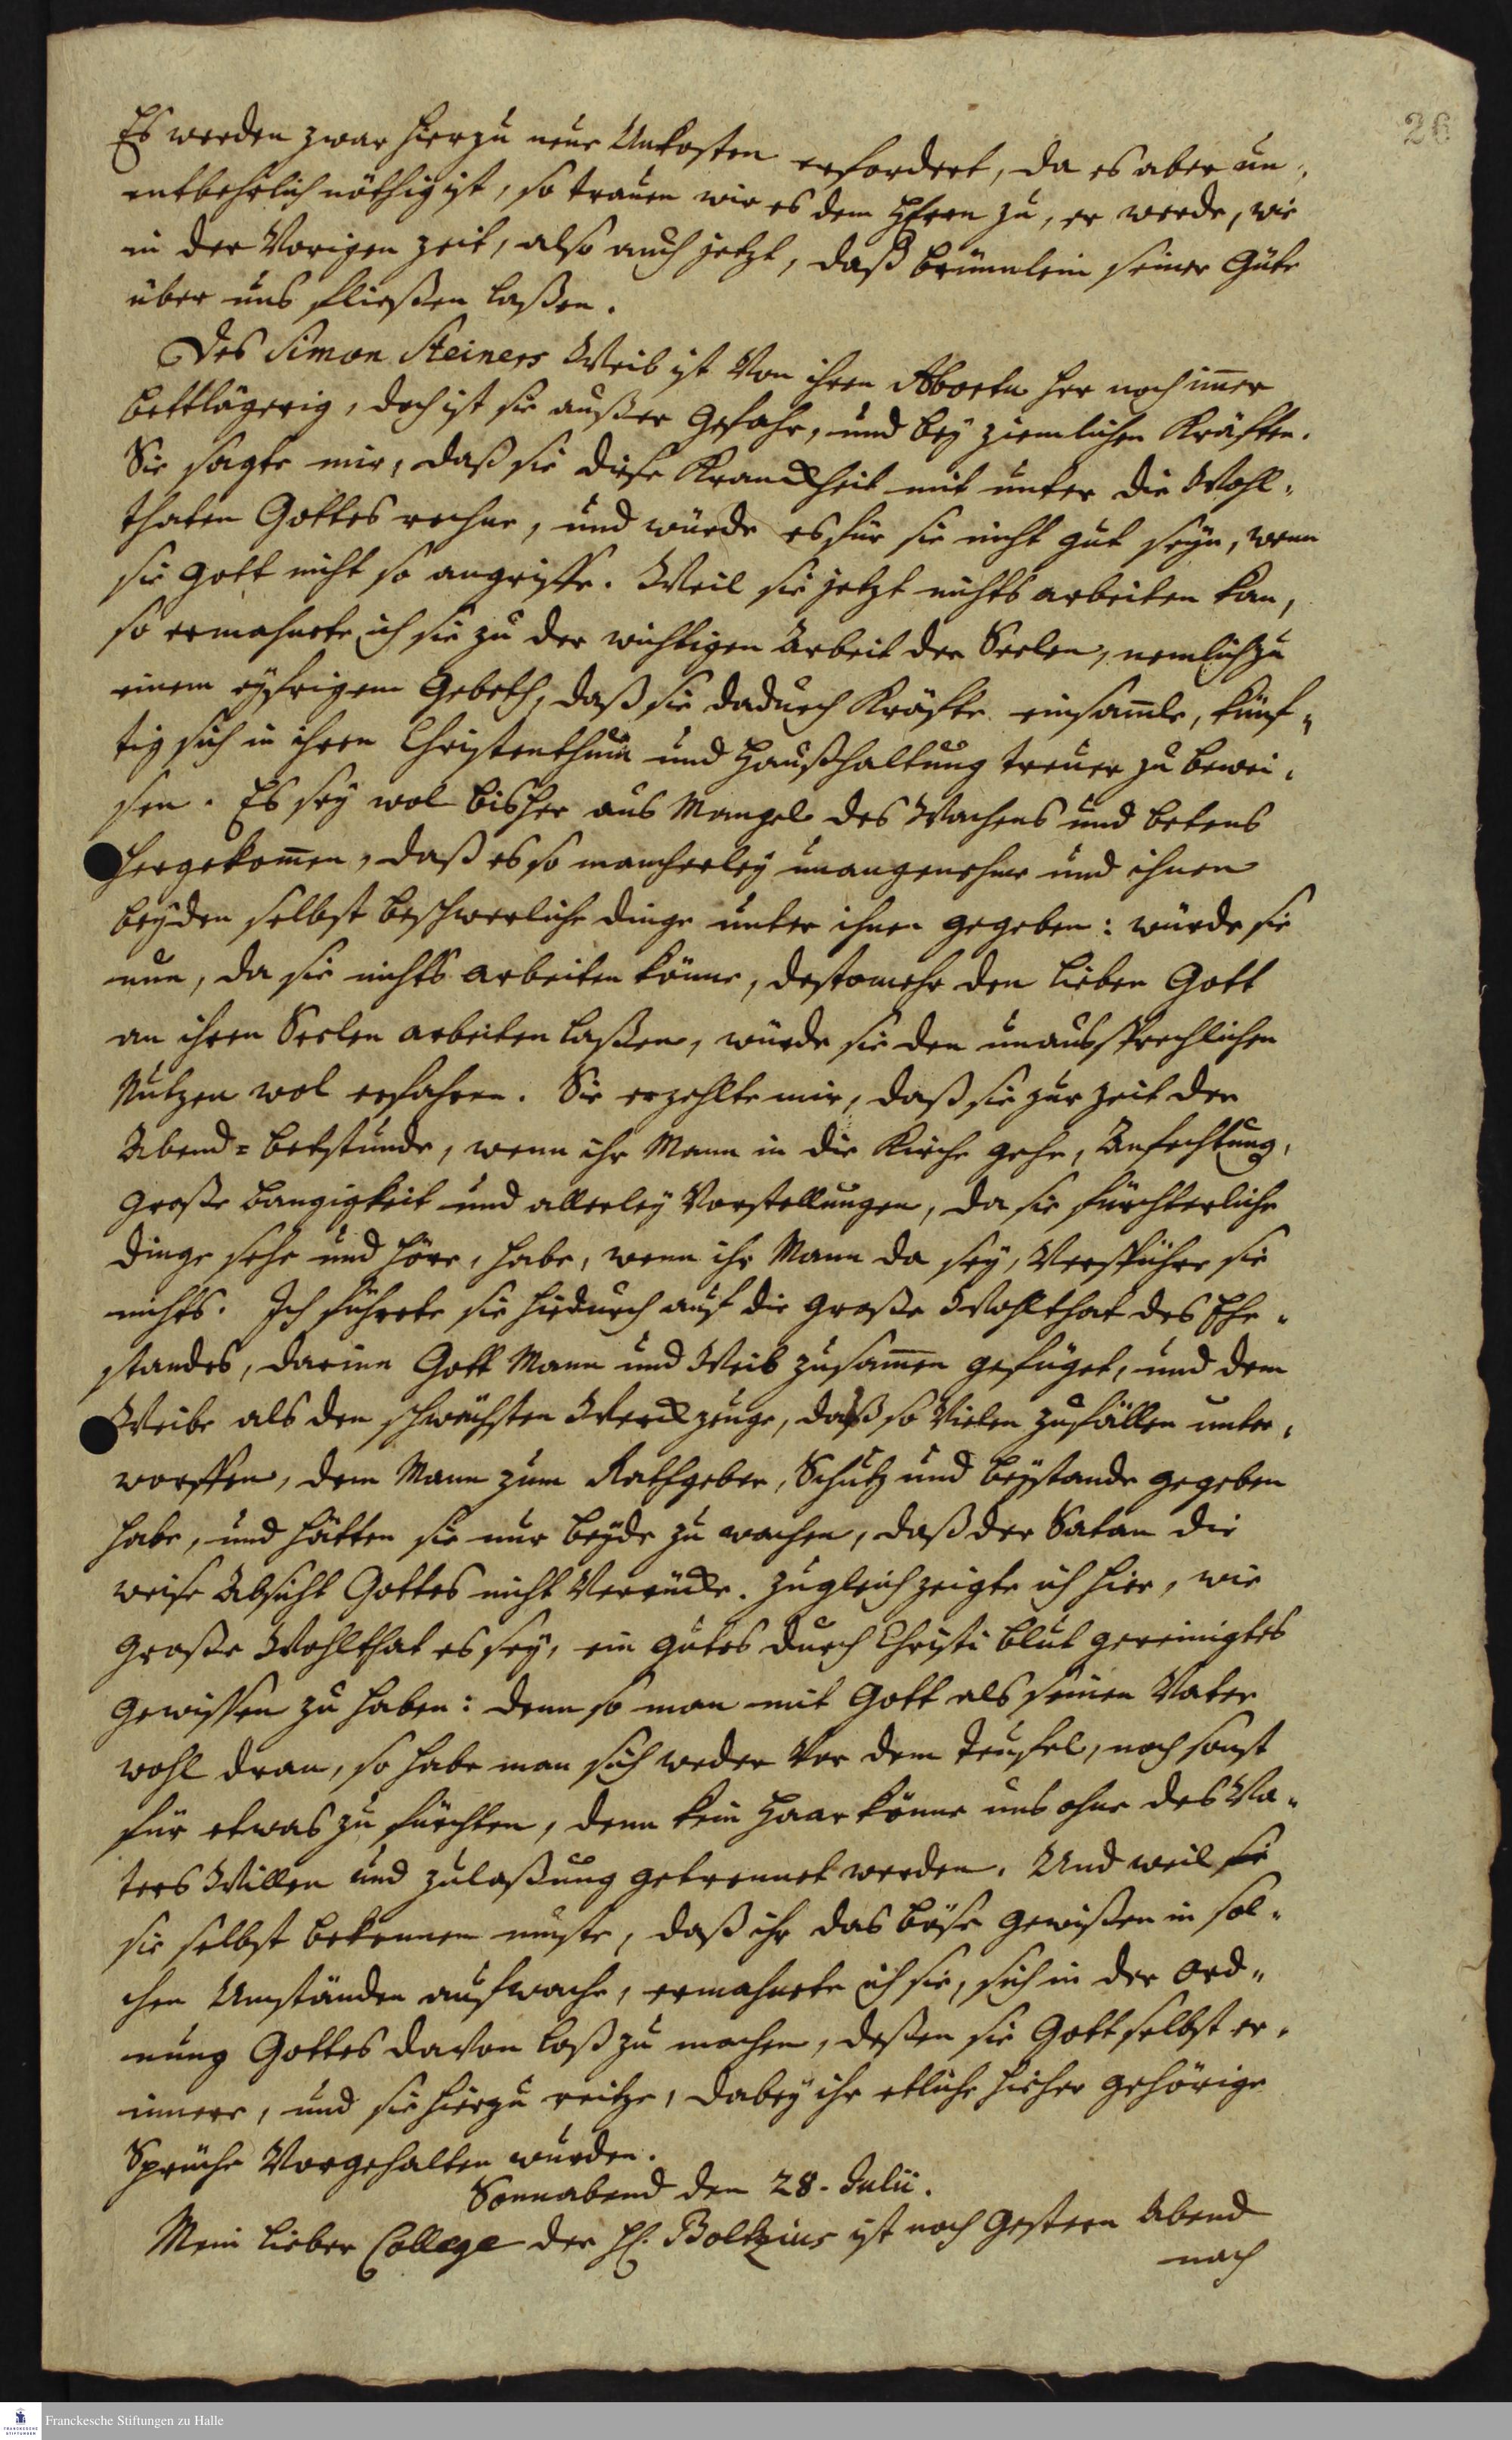 26
Es werden zwar hierzu neue Unkosten erfordert, da es aber un-
entbehrlich nöthig ist, so trauen wir es dem HErrn zu, er werde, wie
in der Vorigen Zeit, also auch jetzt, daß brünnlein seiner Güte
über uns fließen laßen.
Des Simon Steiners Weib ist Von ihren Abortu her noch im̅er
bettlägerig, doch ist sie außer Gefahr, und bey ziemlichen Kräften.
Sie sagte mir, daß sie diese Kranckheit mit unter die Wohl-
thaten Gottes rechne, und würde es für sie nicht gut seyn, wenn
sie Gott nicht so angriffe. Weil sie jetzt nichts arbeiten kan,
so ermahnete ich sie zu der wichtigen Arbeit der Seelen, nemlich zu
einem eyfrigem Gebeth, daß sie dadurch Kräfte einsam̅le, künf-
tig sich in ihren Christenthum und Haußhaltung treuer zu bewei-
sen. Es sey wol bisher aus Mangel des Wachens und betens
hergekom̅en, daß es so mancherley unangenehme und ihnen
beyden selbst beschwerliche dinge unter ihnen gegeben: würde sie
nun, da sie nichts arbeiten könne, destomehr den lieben Gott
an ihren Seelen arbeiten laßen, würde sie den unaussprechlichen
Nutzen wol erfahren. Sie erzehlte mir, daß sie zur zeit der
Abend=betstunde, wenn ihr Mann in die Kirche gehe, Anfechtung,
große bangigkeit und allerley Vorstellungen, da sie fürchterliche
dinge sehe und höre, habe, wenn ihr Mann da sey, Verspühre sie
nichts. Ich führete sie hiedurch auf die große Wohlthat des Ehe-
standes, darinn Gott Mann und Weib zusam̅en gefüget, und dem
Weibe als den schwächsten Werckzeuge, daß so Vielen zufällen unter-
worffen, den Mann zum Rathgeber, Schutz und beystande gegeben
habe, und hätten sie nur beyde zu wachen, daß der Satan die
weise Absicht Gottes nicht Verrücke. Zugleich zeigte ich hier, wie
große Wohlthat es sey, ein gutes durch Christi blut gereinigtes
Gewissen zu haben: denn so man mit Gott als seinen Vater
wohl dran, so habe man sich weder Vor dem Teufel, noch sonst
für etwas zu fürchten, denn kein Haar könne uns ohne des Va-
ters Willen und zulaßung getrennet werden. Und weil sie
sie selbst bekennen muste, daß ihr das böse Gewißen in sol-
chen Umständen aufwache, ermahnete ich sie, sich in der Ord-
nung Gottes davon loß zu machen, deßen sie Gott selbst er-
innere, und sie hierzu reitze, dabey ihr etliche hieher gehörige
Sprüche Vorgehalten wurden.
Sonnabend den 28. Julii.
Mein lieber College der H. Boltzius ist noch gestern Abend
nach
Franckesche Stiftungen zu Halle